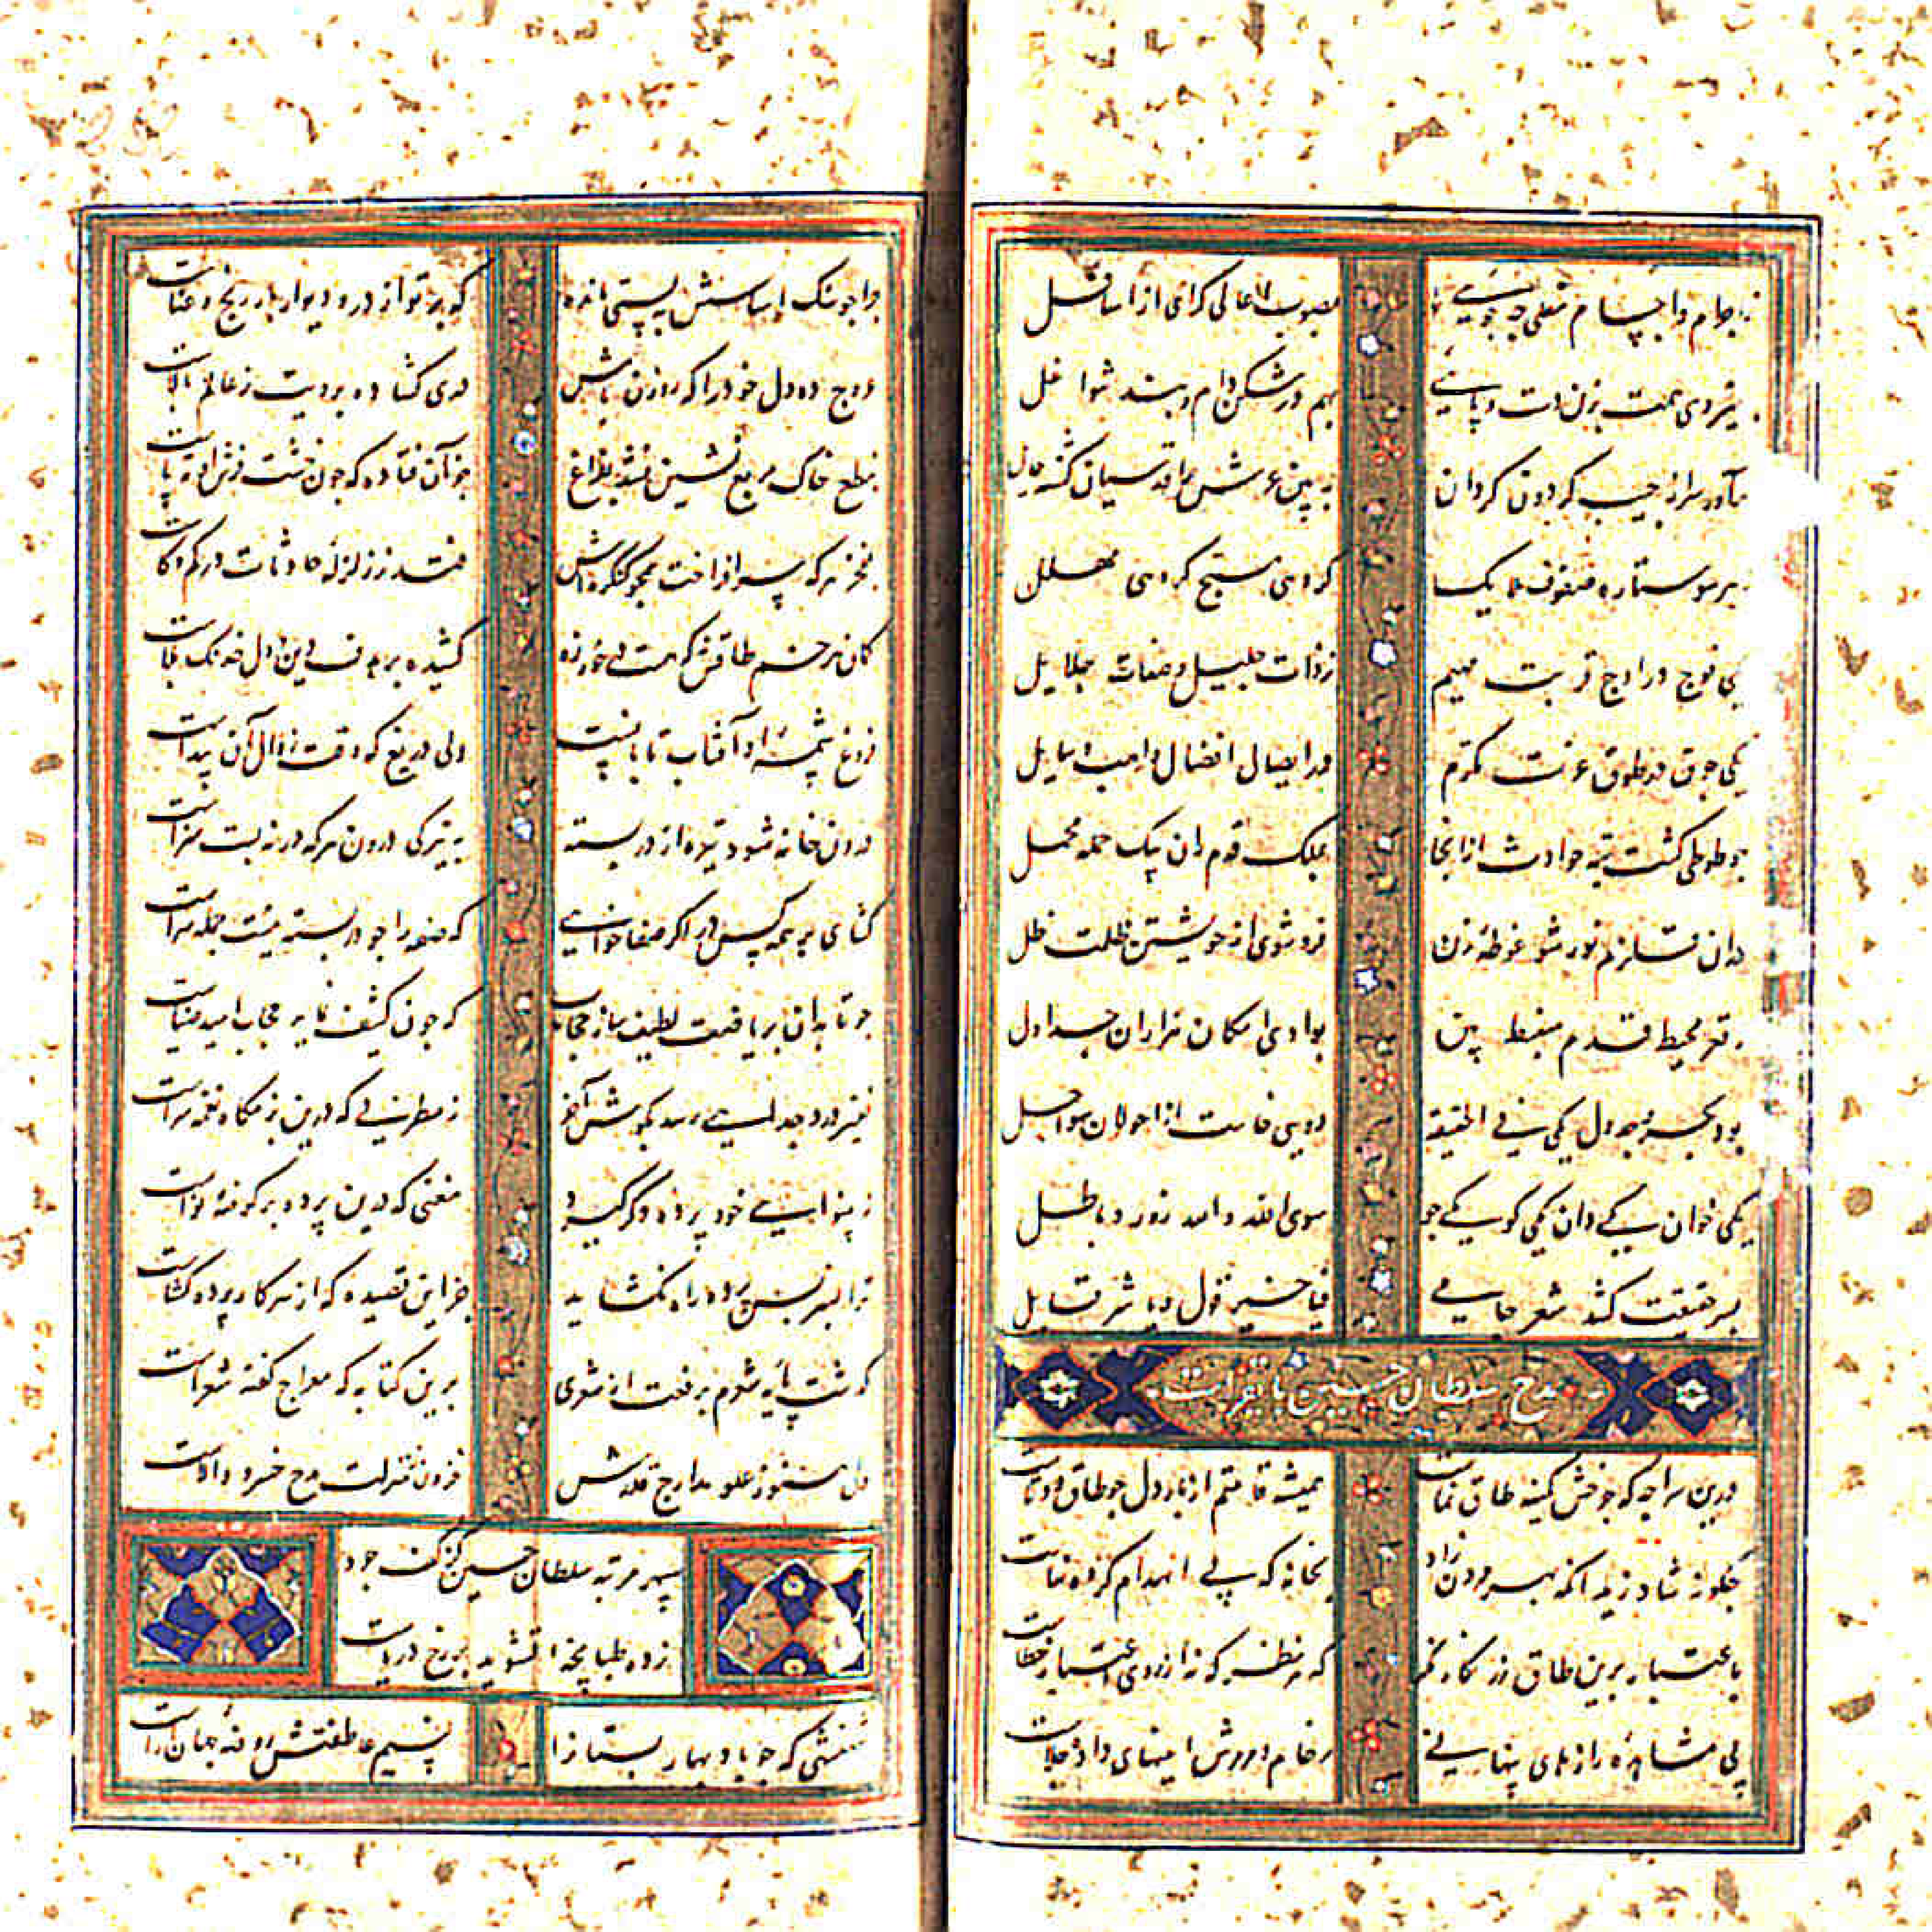 ز اجرام و اجسام سفلی چه جویی
بصوب اعالی گرای از اسافل
به نیروی همت بزن دست و پایی
بهم درشکن دام و بند شواغل
برآور سر از جیب گردون گردان
ببین عرش را قدسیان گشته حامل
بهر سو ستاده صفوف ملایک
گروهی مسبح گروهی مهلل
یکی فوج در اوج قربت مهیم
ز ذات جلیل و صفات جلایل
یکی جوق در طوق عزت مکرم
در ایصال افضال و
چو طی گشت تیه حوادث از آنجا
بملک قدم ران بیک حمله محمل
در آن قلزم نور شو غوطه زن
فرو شوی از خویشتن ظلمت ظل
قعر محیط قدم منبسط بین
بوادی امکان هزاران جداول
بود بحر و جدول یکی فی الحقیقه
دویی خاست از اجولان سواحل
یکی خوان یکی دان یکی گو یکی جو
سوی الله والله زور و باطل
بسر حقیقت کشد شعر جامی
فیا خیر قول و یا شر قایل
مدح سلطان حسین بایقراست
درین سراچه که چرخش کمینه طاق نماست
همیشه قامتم از بار دل چو طاق دوتاست
چگونه شاد زید آنکه بهر بودن زاد
بخانه که پی انهدام کرده بناست
باعتبار برین طاق زرنگار نگر
که هر نظر که نه از روی اعتبار خطاست
پی مشاهده رازهای پنهانی
رخام دورش آیینهای داده جلاست
چرا چو سنگ اساسش به پستی مانده
که بر تو از در و دیوار بار رنج و عناست
فروج ده دل خود را که روزن بامش
دری گشاده برویت ز عالم بالاست
بنطع خاک مربع نشین نشد بفراغ
جز آن فتاده که چون خشت فرش او ته پاست
بفخر هر که سر افراخت همچو کنگره‌اش
فتد ز زلزله حادثات در کم و کاست
کمان هر خم طاقش که هست دل خورده
کشیده بر هدف دین و دل خدنگ بلاست
فروغ شمسه او آفتاب تابانیست
ولی دریغ که وقت زوال آن پیداست
درون خانه شود تیره از در بسته
به تیرگی درون هر که در نه بست سزاست
گشای بر همه کس در اگر صفا خواهی
که صفه را چو در بسته نیست جمله سراست
چو تابدان بریاضت لطیف ساز حجاب
که چون کثیف نماید حجاب امید ضیاست
نفیر درد جدایی رسد بگوش آخر
ز مطربی که درین بزمگاه نغمه سراست
ز بینوایی خود پرده دگر گیرد
مغنی که درین پرده بر گرفته نواست
ترا بسر پس پرده راه نگشاید
جز این قصیده که از سر کار پرده گشاست
گذشت پایه شعرم برفعت از شعری
برین کتابه که معراج گفته شعراست
ولی هنوز علو مدارج قدرش
فزون ز منزلت مدح خسرو والاست
سپهر مرتبه سلطان حسین کز کف جود
زده طپانچه تشویر بر رخ دریاست
شهنشهی که چو باد بهار بستان را
نسیم عاطفتش روضه جهان آراست